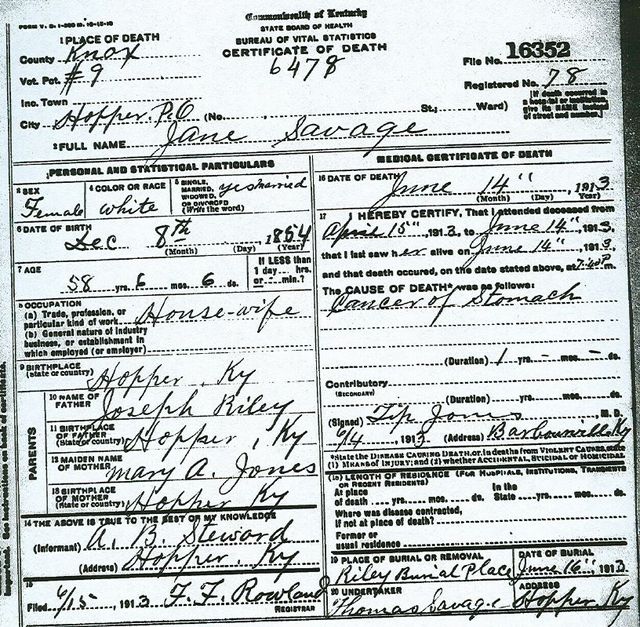 FORM V. S. 1-300 M. 10-15-10
Commonwealth of Kentucky
STATE BOARD OF HEALTH
BUREAU OF VITAL STATISTICS
CERTIFICATE OF DEATH
6478
File No. 16352
Registered No. 78
[If death occurred in a hospital or institution give its NAME instead of street and number.]
1 PLACE OF DEATH
County Knox
Vot. Pct. #9
Inc. Town
City Hopper. P.O (No. St.; Ward)
2 FULL NAME Jane Savage
PERSONAL AND STATISTICAL PARTICULARS
3 SEX Female
4 COLOR OR RACE White
5 SINGLE, MARRIED, WIDOWED OR DIVORCED (Write the word) yes married
6 DATE OF BIRTH
Dec 8th, 1854
(Month) (Day) (Year)
7 AGE
58 yrs. 6 mos. 6 ds.
If LESS than 1 day - hrs. or - min.?
8 OCCUPATION
(a) Trade, profession, or particular kind of work House-wife
(b) General nature of industry business, or establishment in which employed (or employer)
9 BIRTHPLACE
(State or country) Hopper, Ky
PARENTS
10 NAME OF FATHER Joseph Riley
11 BIRTHPLACE OF FATHER
(State or country) Hopper, Ky
12 MAIDEN NAME OF MOTHER Mary A. Jones
13 BIRTHPLACE OF MOTHER
(State or country) Hopper Ky
14 THE ABOVE IS TRUE TO THE BEST OF MY KNOWLEDGE
(Informant) A. B. Steward
(Address) Hopper, Ky
15
Filed 6/15 1913 F. F. Rowland
REGISTRAR
MEDICAL CERTIFICATE OF DEATH
16 DATE OF DEATH
June 14", 1913
(Month) (Day) (Year)
17 I HEREBY CERTIFY, That I attended deceased from
April 15", 1913, to June 14", 1913,
that I last saw her alive on June 14", 1913,
and that death occurred, on the date stated above, at 7:40 P m.
The CAUSE OF DEATH* was as follows:
Cancer of Stomach
(Duration) 1 yrs. - mos. - ds.
Contributory
(SECONDARY)
(Duration) yrs. mos. ds.
(Signed) Tip Jones, M. D.
6/4, 1913 (Address) Barbourville, Ky
*State the DISEASE CAUSING DEATH, or, in deaths from VIOLENT CAUSES, state (1) MEANS OF INJURY; and (2) whether ACCIDENTAL, SUICIDAL or HOMICIDAL
18 LENGTH OF RESIDENCE (FOR HOSPITALS, INSTITUTIONS, TRANSIENTS OR RECENT RESIDENTS)
At place of death yrs. mos. ds. In the State yrs. mos. ds.
Where was disease contracted, if not at place of death?
Former or usual residence
19 PLACE OF BURIAL OR REMOVAL
Riley Burial Place
DATE OF BURIAL
June 16", 1913
20 UNDERTAKER
Thomas Savage
ADDRESS
Hopper, Ky
See instructions on back of certificate.